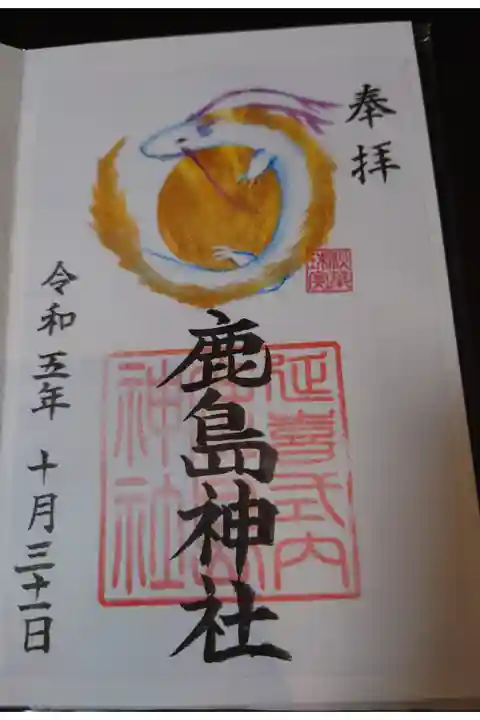 奉拝
鹿島神社
延喜式内
鹿島
神社
令和五年 十月三十一日